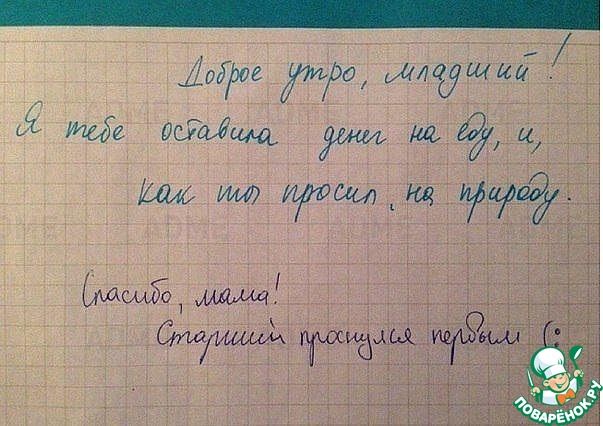 Доброе утро, младший!
Я тебе оставила денег на еду, и,
как ты просил, на природу.
Спасибо, мама!
Старший проснулся первым (:
ПОВАРЁНОК.РУ